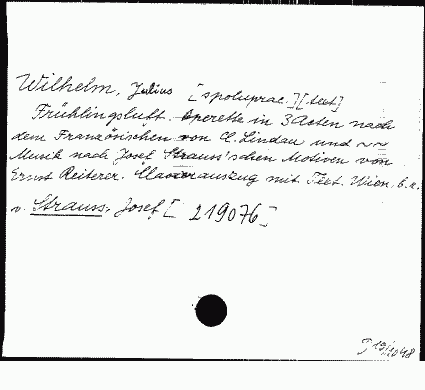 Wilhelm, Julius [spoluprac.] [text]
Frühlingsluft. Operette in 3 Acten nach
dem Französischen von C. Lindau und ~~
Musik nach Josef Strauss'schen Motiven von
Ernst Reiterer. Clavierauszug mit Text. Wien, b.r.
v. Strauss, Josef [219076]